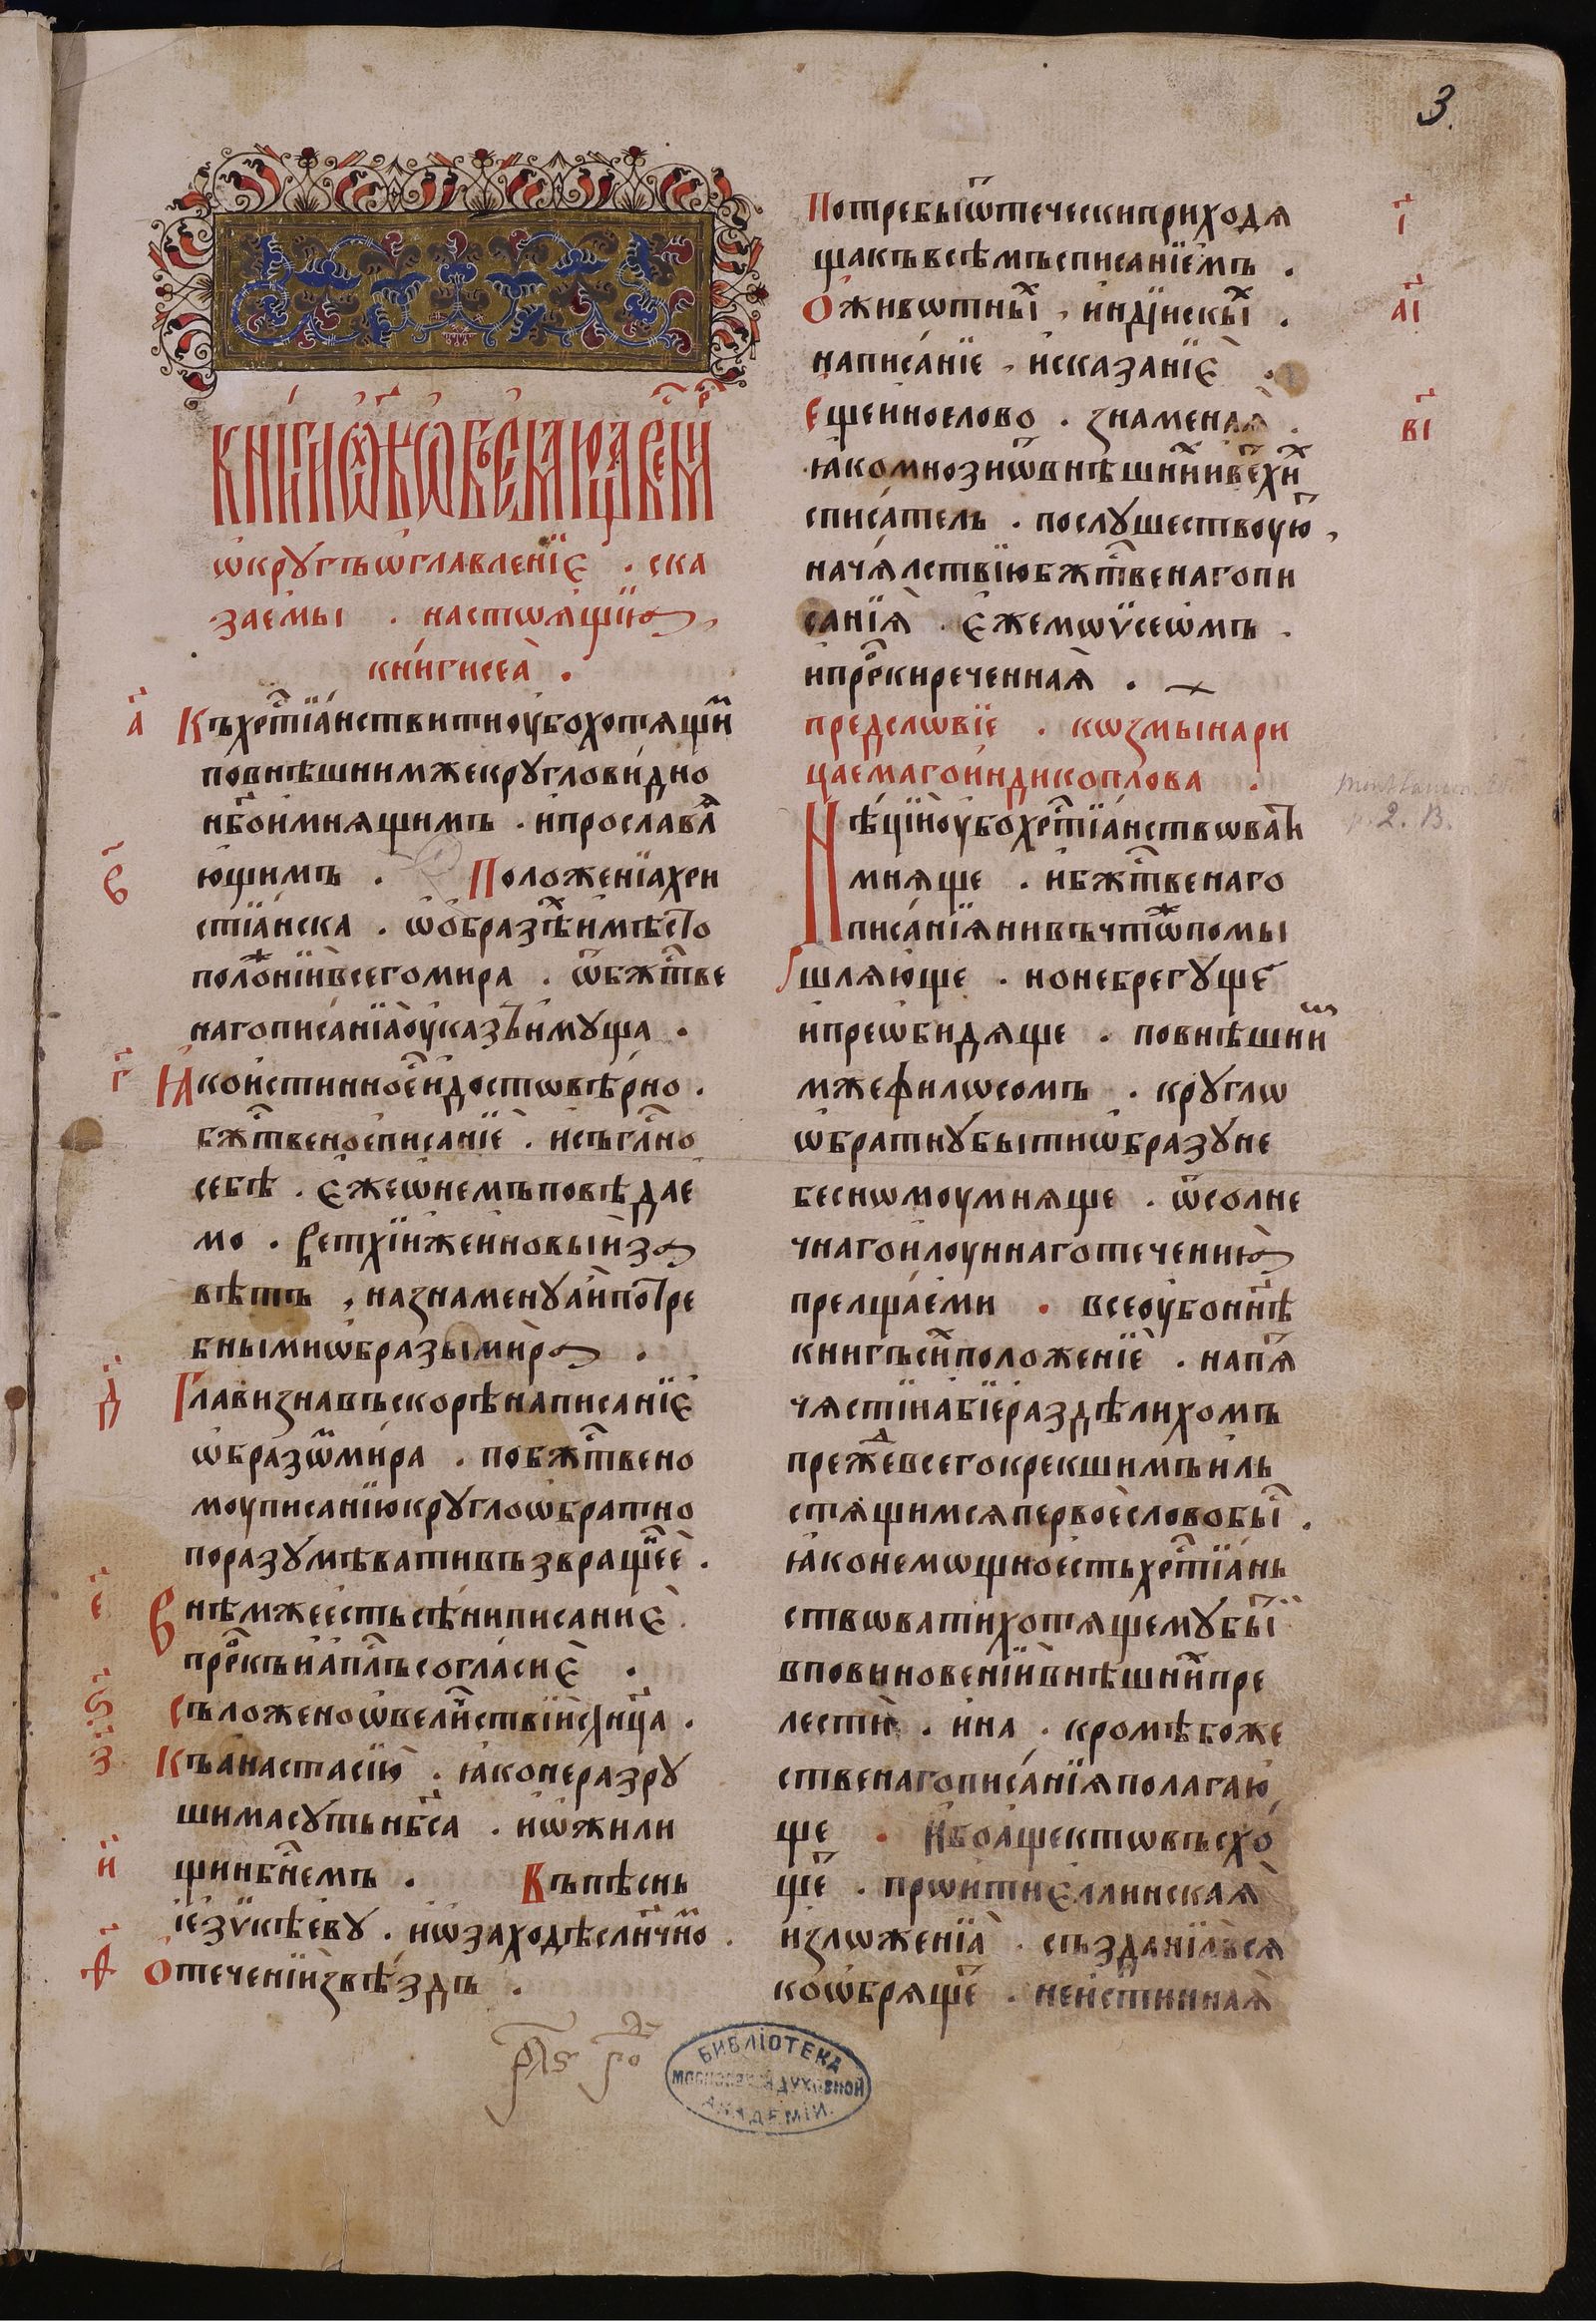 3.
книги ѡ х҃ѣ ѡбъемлющаѧ весь миръ
ѡкругъѡглавленїе . ска
заемы . настѡѧщїю,
книгисеа .
а҃
Къхрⷭ҇тїанствитиоубохотѧщи
повнѣшнимжекругловидно
нб҃оимнѧщимъ . ипрославлѧ
в҃
ющимъ . Положенїахри
стїанска . ѡобразѣхимѣсто
положнїивсегомира . ѿбж҃тве
нагописанїаоуказыимуща .
г҃
Ꙗкоистинноеидостѡвѣрно .
бж҃твеноеписанїе . исъгл҃но
себѣ . Ежеѡнемъповѣдае
мо . ветхїижеиновыиза
вѣтъ , назнаменуаипотре
бнымиѡбразымира .
д҃
Главизнавъскорѣнаписанїе
ѡбразѡмира . побж҃твено
моуписанїюкруглоѡбратно
поразумѣвативъзвращнее .
е҃
Внѣмжеестьсѣниписание
прⷪ҇ркъиапл҃ъсогласие .
ѕ҃
Съложеноѡвеличствїислн҃ца .
з҃
Къанастасїю . ꙗконеразру
шимасутьнб҃са . иѡжили
и҃
щинбн҃емъ . Въпѣснь
їезѵкѣеву . иѡзаходѣслн҃чно .
ѳ҃
Отеченїизвѣздъ .
Потребыѿтеческиприходѧ
щакъвсѣмъсписанїемъ .
і҃
Оживѡтныⷯ , индїискыⷯ .
аі҃
написанїе , исказанїе
ві҃
Ещеиноеслово . знаменаѧ .
ꙗкомнозиѿвнѣшнихиветхи
списатель . послушествоую ,
начѧлствїюбж҃твенагопи
санїѧ . Ежемѡѵсеѡмъ .
ипрⷪ҇ркиреченнаѧ .
предслѡвїе . кѡзмынари
цаемагоиндикоплова .
Нѣцїиоубохрⷭ҇тїанствѡвати
мнѧще . ибж҃твенаго
писанїѧнивъчтоѡпомы
шлѧюще . нонебрегуще
ипреѡбидѧще . повнѣшни
мжефилѡсомъ . круглѡ
ѡбратнубытиѡбразуне
беснѡмоумнѧще . ѿсолне
чнагоилоуннаготечению
прелщаеми . всеоубоиниѣ
книгъсиположенїе . напѧ
чѧстїинабїераздѣлихомъ
преждевсегокрекшимъиль
стѧщимсѧпервоесловобы .
ꙗконемѡщноестьхрⷭ҇тїань
ствѡватихотѧщемубы
вповиновенїивнѣшнипре
лести . ина . кромѣбоже
ственагописанїѧполагаю
ще . Ибоащектѡвъсхо
ще . прѡитиеллинскаѧ
излѡженїа . създанїавсѧ
коѡбрѧще . неистиннаѧ
БИБЛІОТЕКА
МОСКОВСКОЙ ДУХОВНОЙ
АКАДЕМІИ.